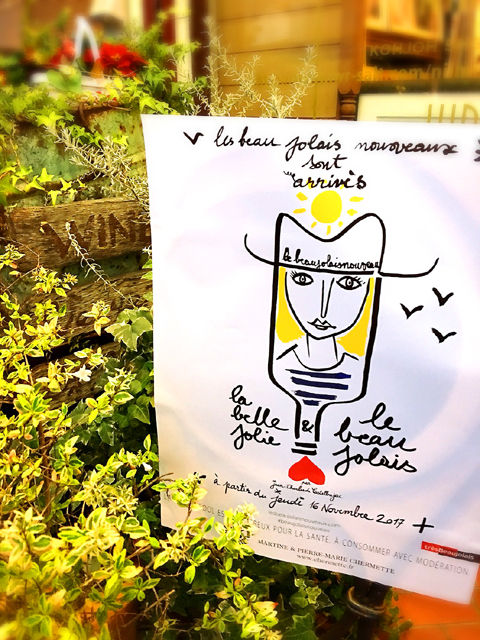 WIN
les beau jolais nouveaux
sont
arrivés
le beaujolais nouveau
la
belle
jolie
&
le
beau
jolais
par
Jean-Charles de Castelbajac
à partir du jeudi 16 Novembre 2017 +
#beaujolaisnouveau
POUR LA SANTÉ. À CONSOMMER AVEC MODÉRATION.
trèsbeaujolais
MARTINE & PIERRE-MARIE CHERMETTE
www.chermette.fr